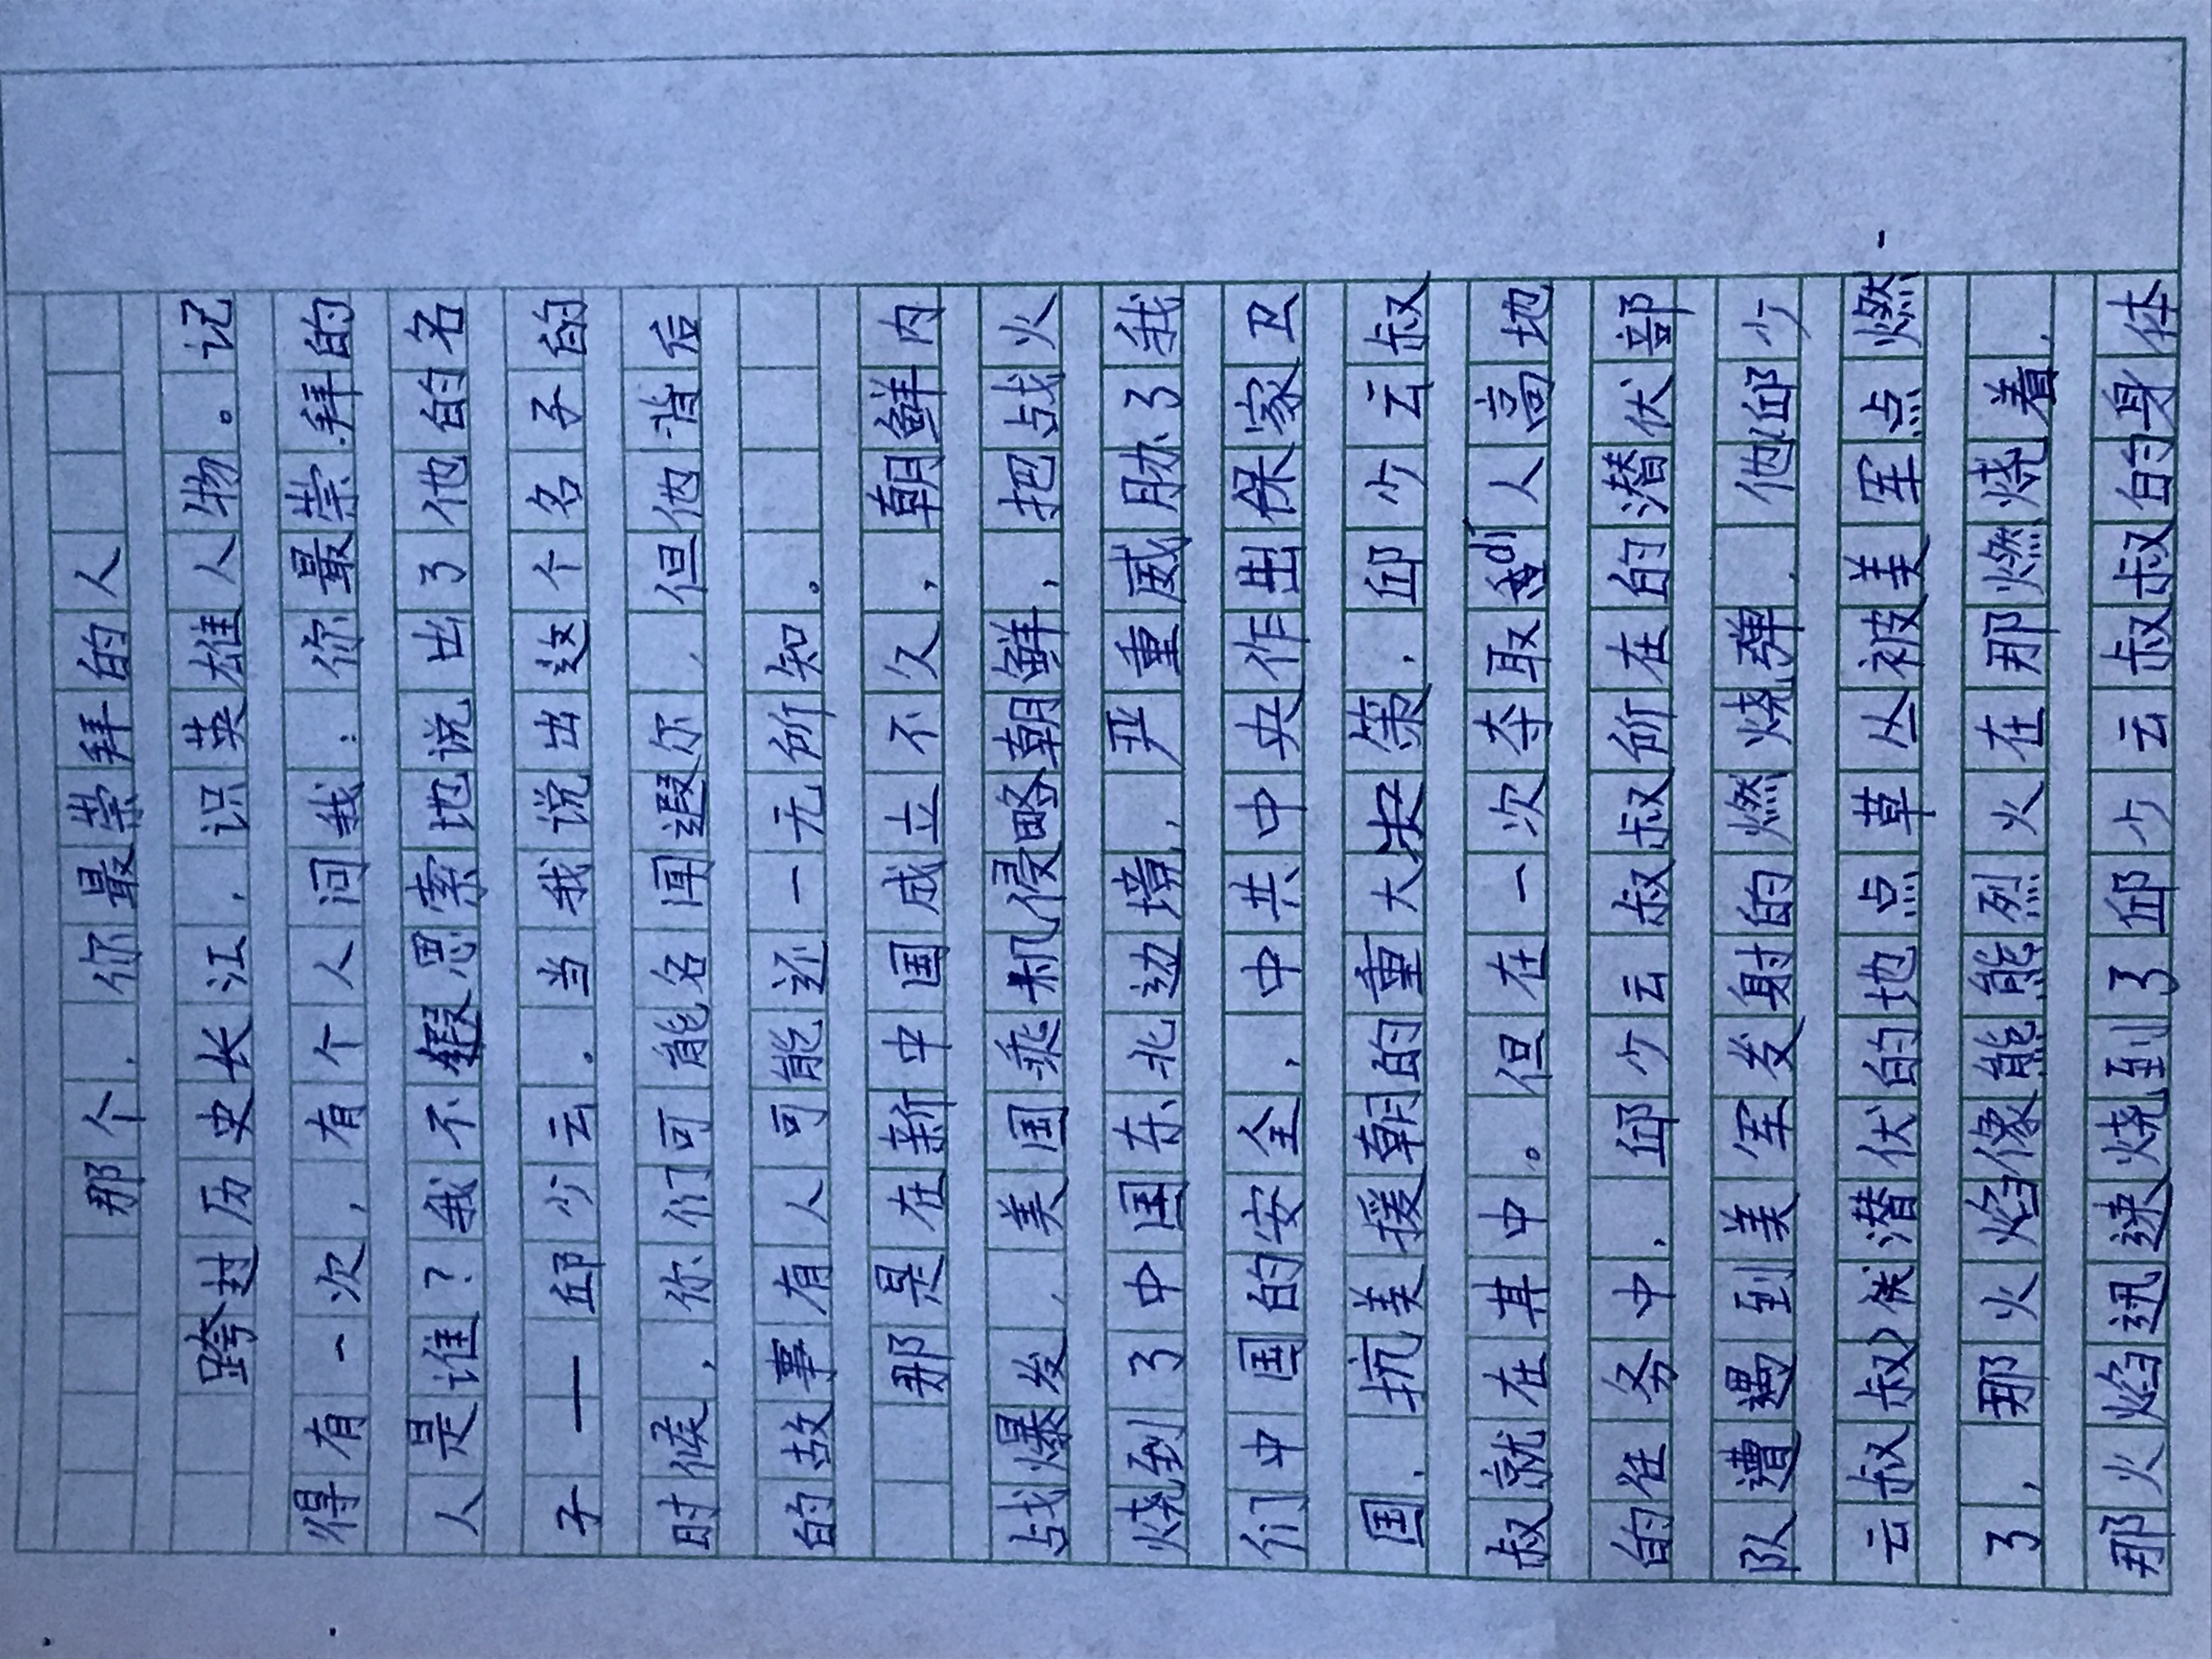 那个，你最崇拜的人
跨过历史长江，识英雄人物。记
得有一次，有个人问我：你最崇拜的
人是谁？我不假思索地说出了他的名
子——邱少云。当我说出这个名子的
时候，你们可能名闻遐尔，但他背后
的故事有人可能还一无所知。
那是在新中国成立不久，朝鲜内
战爆发，美国乘机侵略朝鲜，把战火
烧到了中国东北边境，严重威胁了我
们中国的安全，中共中央作出保家卫
国，抗美援朝的重大决策，邱少云叔
叔就在其中。但在一次夺取敌人高地
的任务中，邱少云叔叔所在的潜伏部
队遭遇到美军发射的燃烧弹，他邱少
云叔叔潜伏的地点草丛被美军点燃
了，那火焰像熊熊烈火在那燃烧着，
那火焰迅速烧到了邱少云叔叔的身体